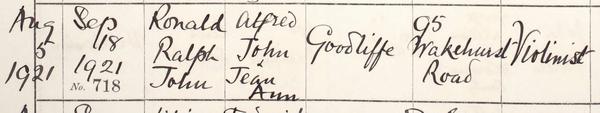 Aug Sep Ronald Alfred 95
5 18 Ralph John Goodliffe Wakehurst Violinist
1921 1921 John Jean Road
No. 718 Ann